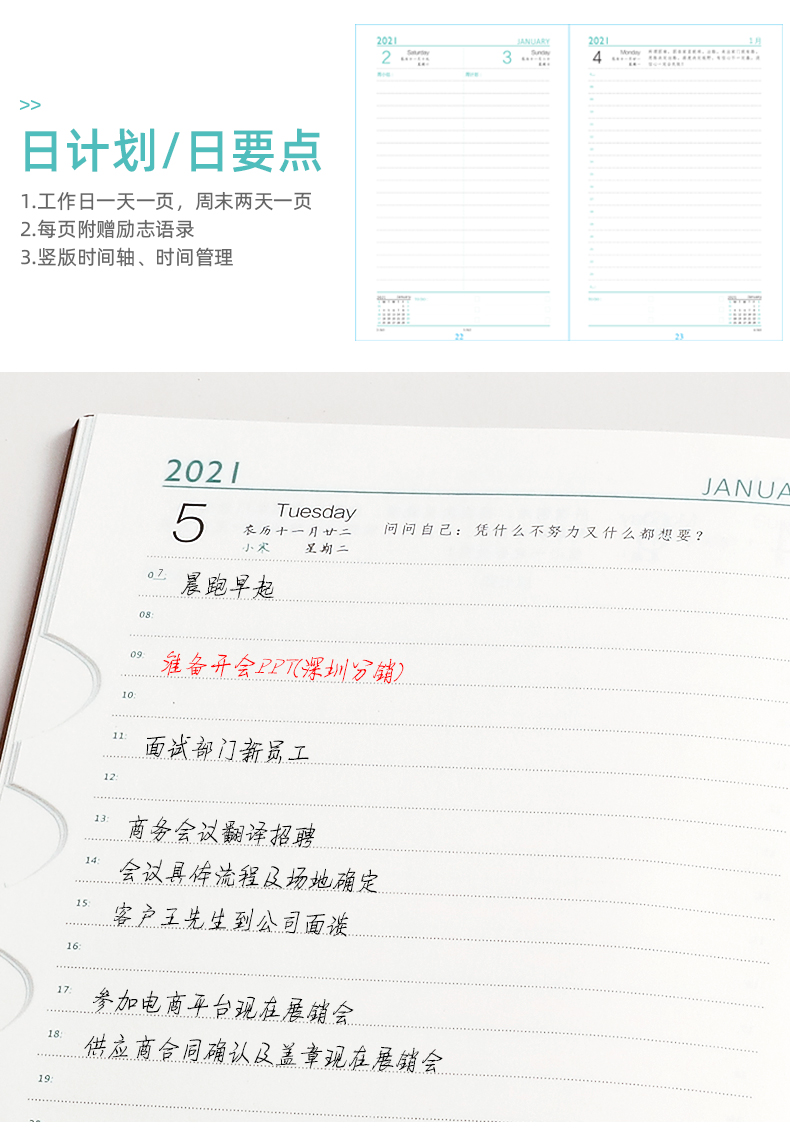 >>
日计划/日要点
1.工作日一天一页，周末两天一页
2.每页附赠励志语录
3.竖版时间轴、时间管理
2021
JANUARY
2
Saturday
3
Sunday
22
2021
1月
4
Monday
23
2021
JANUA
5
Tuesday
农历十一月廿二
小寒 星期二
问问自己：凭什么不努力又什么都想要？
07: 晨跑早起
08:
09: 准备开会PPT(深圳分销)
10:
11: 面试部门新员工
12:
13: 商务会议翻译招聘
14: 会议具体流程及场地确定
15: 客户王先生到公司面谈
16:
17: 参加电商平台现在展销会
18: 供应商合同确认及盖章现在展销会
19: